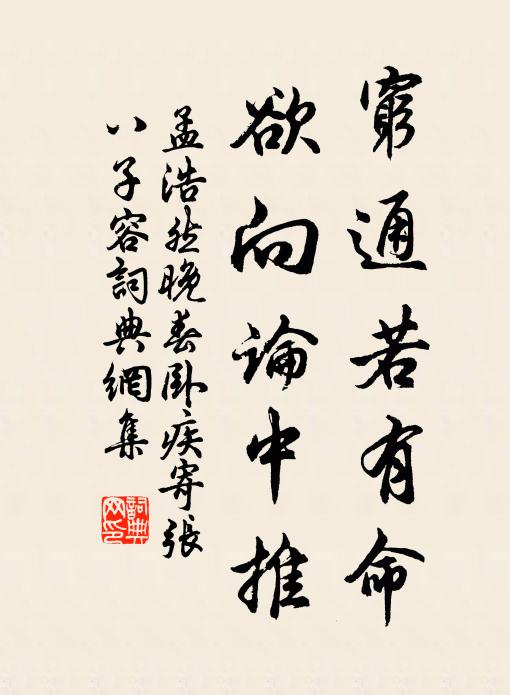 窮通若有命
欲向論中推
孟浩然晚春卧疾寄張
八子容詞典網集
詞典
网印